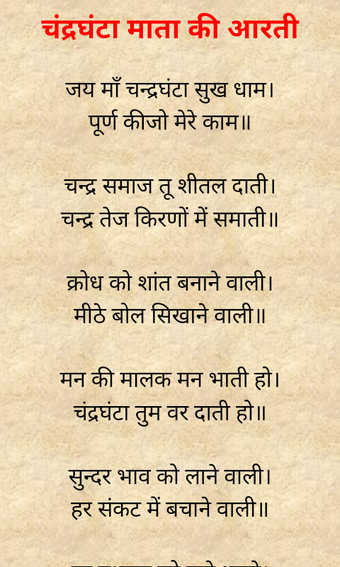 चंद्रघंटा माता की आरती
जय माँ चन्द्रघंटा सुख धाम।
पूर्ण कीजो मेरे काम॥
चन्द्र समाज तू शीतल दाती।
चन्द्र तेज किरणों में समाती॥
क्रोध को शांत बनाने वाली।
मीठे बोल सिखाने वाली॥
मन की मालक मन भाती हो।
चंद्रघंटा तुम वर दाती हो॥
सुन्दर भाव को लाने वाली।
हर संकट में बचाने वाली॥